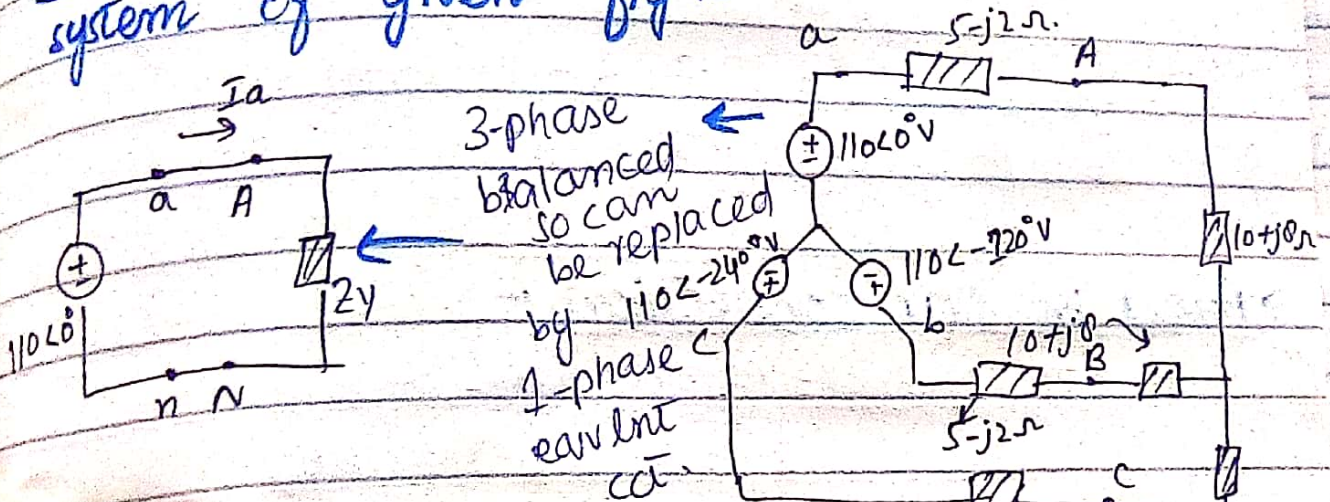 system of given fig
Ia
a A
110<0°
Zy
n N
3-phase
balanced
so can
be replaced
by
1-phase
ckt.
a
5-j2Ω.
A
110<0°V
10+j8Ω
110<-240°V
110<-120°V
c
b
10+j8
B
5-j2Ω
C